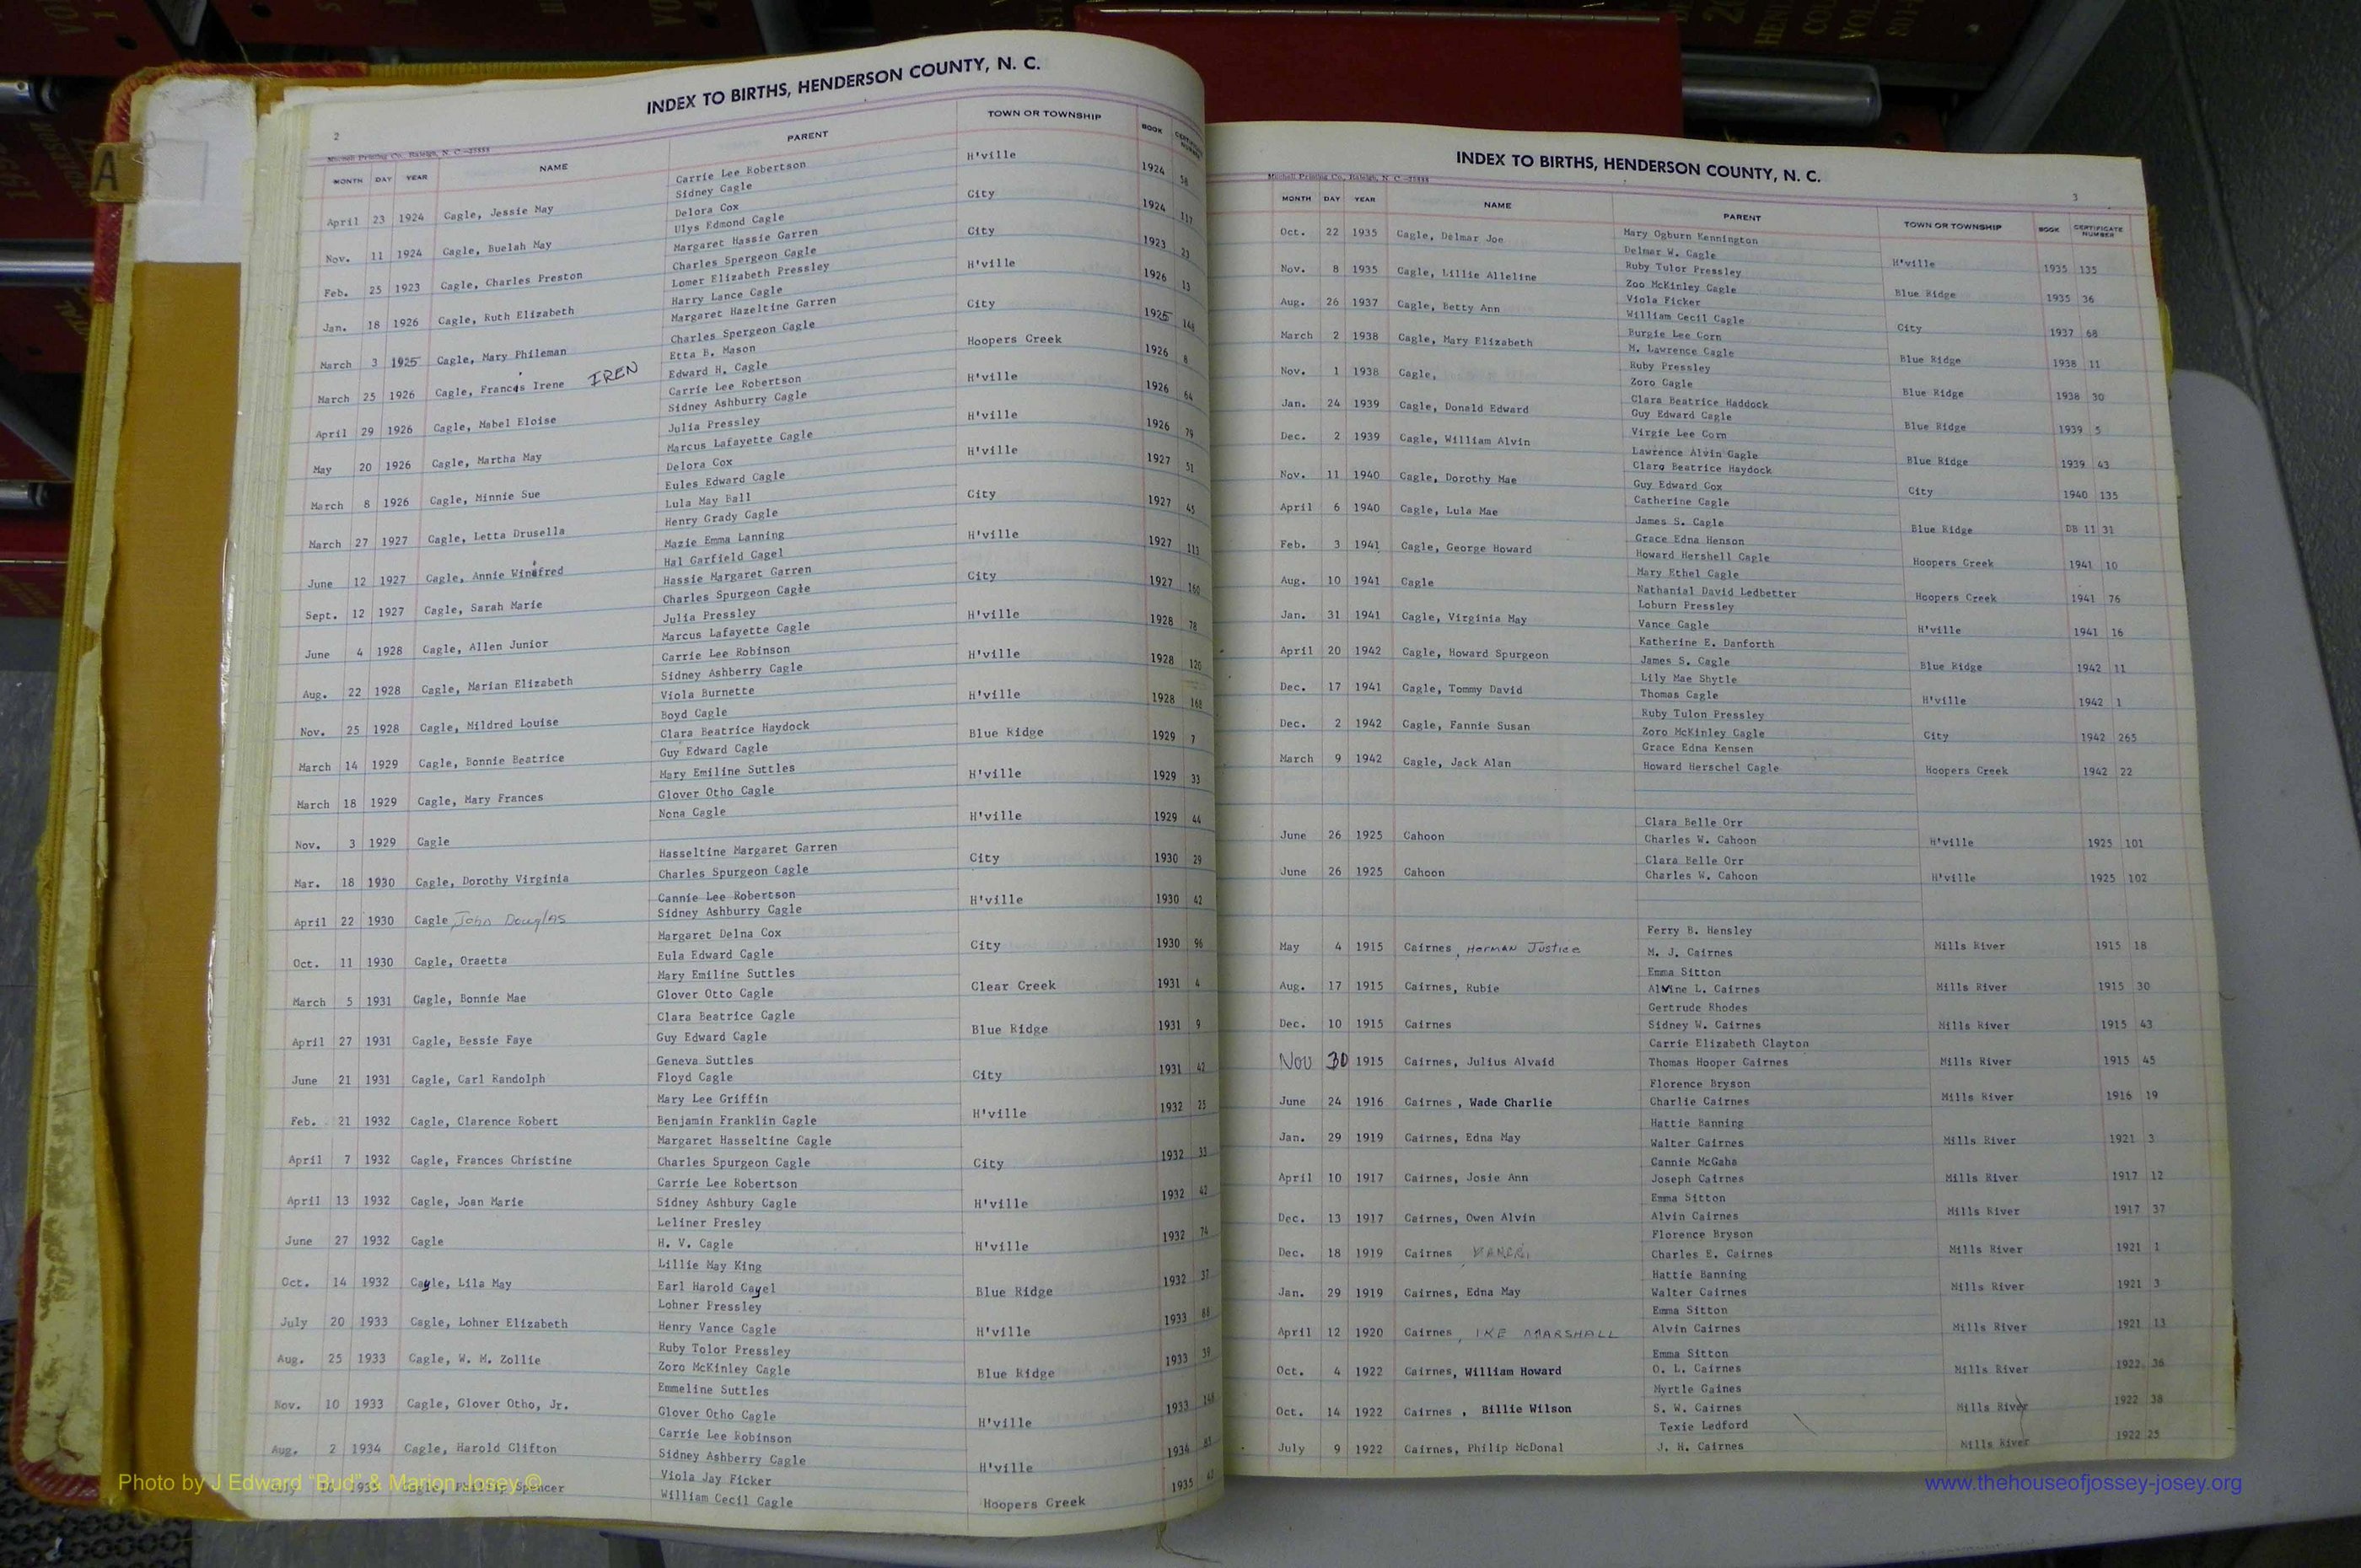 INDEX TO BIRTHS, HENDERSON COUNTY, N. C.
2
Mitchell Printing Co., Raleigh, N. C.
MONTH DAY YEAR NAME PARENT TOWN OR TOWNSHIP BOOK CERTIFICATE NUMBER
Carrie Lee Robertson
April 23 1924 Cagle, Jessie May Sidney Cagle H'ville 1924 58
Delora Cox
Nov. 11 1924 Cagle, Buelah May Ulys Edmond Cagle City 1924 117
Margaret Hassie Garren
Feb. 25 1923 Cagle, Charles Preston Charles Spergeon Cagle City 1923 23
Lomer Elizabeth Pressley
Jan. 18 1926 Cagle, Ruth Elizabeth Harry Lance Cagle H'ville 1926 13
Margaret Hazeltine Garren
March 3 1925 Cagle, Mary Phileman Charles Spergeon Cagle City 1925 148
Etta B. Mason
March 25 1926 Cagle, Francis Irene IREN Edward H. Cagle Hoopers Creek 1926 8
Carrie Lee Robertson
April 29 1926 Cagle, Mabel Eloise Sidney Ashburry Cagle H'ville 1926 64
Julia Pressley
May 20 1926 Cagle, Martha May Marcus Lafayette Cagle H'ville 1926 79
Delora Cox
March 8 1926 Cagle, Minnie Sue Eules Edward Cagle H'ville 1927 51
Lula May Ball
March 27 1927 Cagle, Letta Drusella Henry Grady Cagle City 1927 45
Mazie Emma Lanning
June 12 1927 Cagle, Annie Winifred Hal Garfield Cagel H'ville 1927 113
Hassie Margaret Garren
Sept. 12 1927 Cagle, Sarah Marie Charles Spurgeon Cagle City 1927 160
Julia Pressley
June 4 1928 Cagle, Allen Junior Marcus Lafayette Cagle H'ville 1928 78
Carrie Lee Robinson
Aug. 22 1928 Cagle, Marian Elizabeth Sidney Ashberry Cagle H'ville 1928 120
Viola Burnette
Nov. 25 1928 Cagle, Mildred Louise Boyd Cagle H'ville 1928 168
Clara Beatrice Haydock
March 14 1929 Cagle, Bonnie Beatrice Guy Edward Cagle Blue Ridge 1929 7
Mary Emiline Suttles
March 18 1929 Cagle, Mary Frances Glover Otho Cagle H'ville 1929 33
Nona Cagle
Nov. 3 1929 Cagle H'ville 1929 44
Hasseltine Margaret Garren
Mar. 18 1930 Cagle, Dorothy Virginia Charles Spurgeon Cagle City 1930 29
Cannie Lee Robertson
April 22 1930 Cagle, John Douglas Sidney Ashburry Cagle H'ville 1930 42
Margaret Delna Cox
Oct. 11 1930 Cagle, Oraetta Eula Edward Cagle City 1930 96
Mary Emiline Suttles
March 5 1931 Cagle, Bonnie Mae Glover Otto Cagle Clear Creek 1931 4
Clara Beatrice Cagle
April 27 1931 Cagle, Bessie Faye Guy Edward Cagle Blue Ridge 1931 9
Geneva Suttles
June 21 1931 Cagle, Carl Randolph Floyd Cagle City 1931 42
Mary Lee Griffin
Feb. 21 1932 Cagle, Clarence Robert Benjamin Franklin Cagle H'ville 1932 25
Margaret Hasseltine Cagle
April 7 1932 Cagle, Frances Christine Charles Spurgeon Cagle City 1932 33
Carrie Lee Robertson
April 13 1932 Cagle, Joan Marie Sidney Ashbury Cagle H'ville 1932 42
Leliner Presley
June 27 1932 Cagle H. V. Cagle H'ville 1932 74
Lillie May King
Oct. 14 1932 Cagle, Lila May Earl Harold Cagel Blue Ridge 1932 37
Lohner Pressley
July 20 1933 Cagle, Lohner Elizabeth Henry Vance Cagle H'ville 1933 88
Ruby Tolor Pressley
Aug. 25 1933 Cagle, W. M. Zollie Zoro McKinley Cagle Blue Ridge 1933 39
Emmeline Suttles
Nov. 10 1933 Cagle, Glover Otho, Jr. Glover Otho Cagle H'ville 1933 148
Carrie Lee Robinson
Aug. 2 1934 Cagle, Harold Clifton Sidney Ashberry Cagle H'ville 1934 85
Viola Jay Ficker
Spencer William Cecil Cagle Hoopers Creek 1935 42
INDEX TO BIRTHS, HENDERSON COUNTY, N. C.
3
Mitchell Printing Co., Raleigh, N. C.
MONTH DAY YEAR NAME PARENT TOWN OR TOWNSHIP BOOK CERTIFICATE NUMBER
Mary Ogburn Kennington
Oct. 22 1935 Cagle, Delmar Joe Delmar W. Cagle H'ville 1935 135
Ruby Tulor Pressley
Nov. 8 1935 Cagle, Lillie Alleline Zoo McKinley Cagle Blue Ridge 1935 36
Viola Ficker
Aug. 26 1937 Cagle, Betty Ann William Cecil Cagle City 1937 68
Burgie Lee Corn
March 2 1938 Cagle, Mary Elizabeth M. Lawrence Cagle Blue Ridge 1938 11
Ruby Pressley
Nov. 1 1938 Cagle, Zoro Cagle Blue Ridge 1938 30
Clara Beatrice Haddock
Jan. 24 1939 Cagle, Donald Edward Guy Edward Cagle Blue Ridge 1939 5
Virgie Lee Corn
Dec. 2 1939 Cagle, William Alvin Lawrence Alvin Cagle Blue Ridge 1939 43
Clara Beatrice Haydock
Nov. 11 1940 Cagle, Dorothy Mae Guy Edward Cox City 1940 135
Catherine Cagle
April 6 1940 Cagle, Lula Mae James S. Cagle Blue Ridge DB 11 31
Grace Edna Henson
Feb. 3 1941 Cagle, George Howard Howard Hershell Cagle Hoopers Creek 1941 10
Mary Ethel Cagle
Aug. 10 1941 Cagle Nathanial David Ledbetter Hoopers Creek 1941 76
Loburn Pressley
Jan. 31 1941 Cagle, Virginia May Vance Cagle H'ville 1941 16
Katherine E. Danforth
April 20 1942 Cagle, Howard Spurgeon James S. Cagle Blue Ridge 1942 11
Lily Mae Shytle
Dec. 17 1941 Cagle, Tommy David Thomas Cagle H'ville 1942 1
Ruby Tulon Pressley
Dec. 2 1942 Cagle, Fannie Susan Zoro McKinley Cagle City 1942 265
Grace Edna Kensen
March 9 1942 Cagle, Jack Alan Howard Herschel Cagle Hoopers Creek 1942 22
Clara Belle Orr
June 26 1925 Cahoon Charles W. Cahoon H'ville 1925 101
Clara Belle Orr
June 26 1925 Cahoon Charles W. Cahoon H'ville 1925 102
Ferry B. Hensley
May 4 1915 Cairnes, Herman Justice M. J. Cairnes Mills River 1915 18
Emma Sitton
Aug. 17 1915 Cairnes, Rubie Alvine L. Cairnes Mills River 1915 30
Gertrude Rhodes
Dec. 10 1915 Cairnes Sidney W. Cairnes Mills River 1915 43
Carrie Elizabeth Clayton
Nov 30 1915 Cairnes, Julius Alvaid Thomas Hooper Cairnes Mills River 1915 45
Florence Bryson
June 24 1916 Cairnes, Wade Charlie Charlie Cairnes Mills River 1916 19
Hattie Banning
Jan. 29 1919 Cairnes, Edna May Walter Cairnes Mills River 1921 3
Cannie McGaha
April 10 1917 Cairnes, Josie Ann Joseph Cairnes Mills River 1917 12
Emma Sitton
Dec. 13 1917 Cairnes, Owen Alvin Alvin Cairnes Mills River 1917 37
Florence Bryson
Dec. 18 1919 Cairnes Charles E. Cairnes Mills River 1921 1
Hattie Banning
Jan. 29 1919 Cairnes, Edna May Walter Cairnes Mills River 1921 3
Emma Sitton
April 12 1920 Cairnes, IKE MARSHALL Alvin Cairnes Mills River 1921 13
Emma Sitton
Oct. 4 1922 Cairnes, William Howard O. L. Cairnes Mills River 1922 36
Myrtle Gaines
Oct. 14 1922 Cairnes, Billie Wilson S. W. Cairnes Mills River 1922 38
Texie Ledford
July 9 1922 Cairnes, Philip McDonal J. H. Cairnes Mills River 1922 25
Photo by J Edward "Bud" & Marion Josey ©
www.thehouseofjossey-josey.org